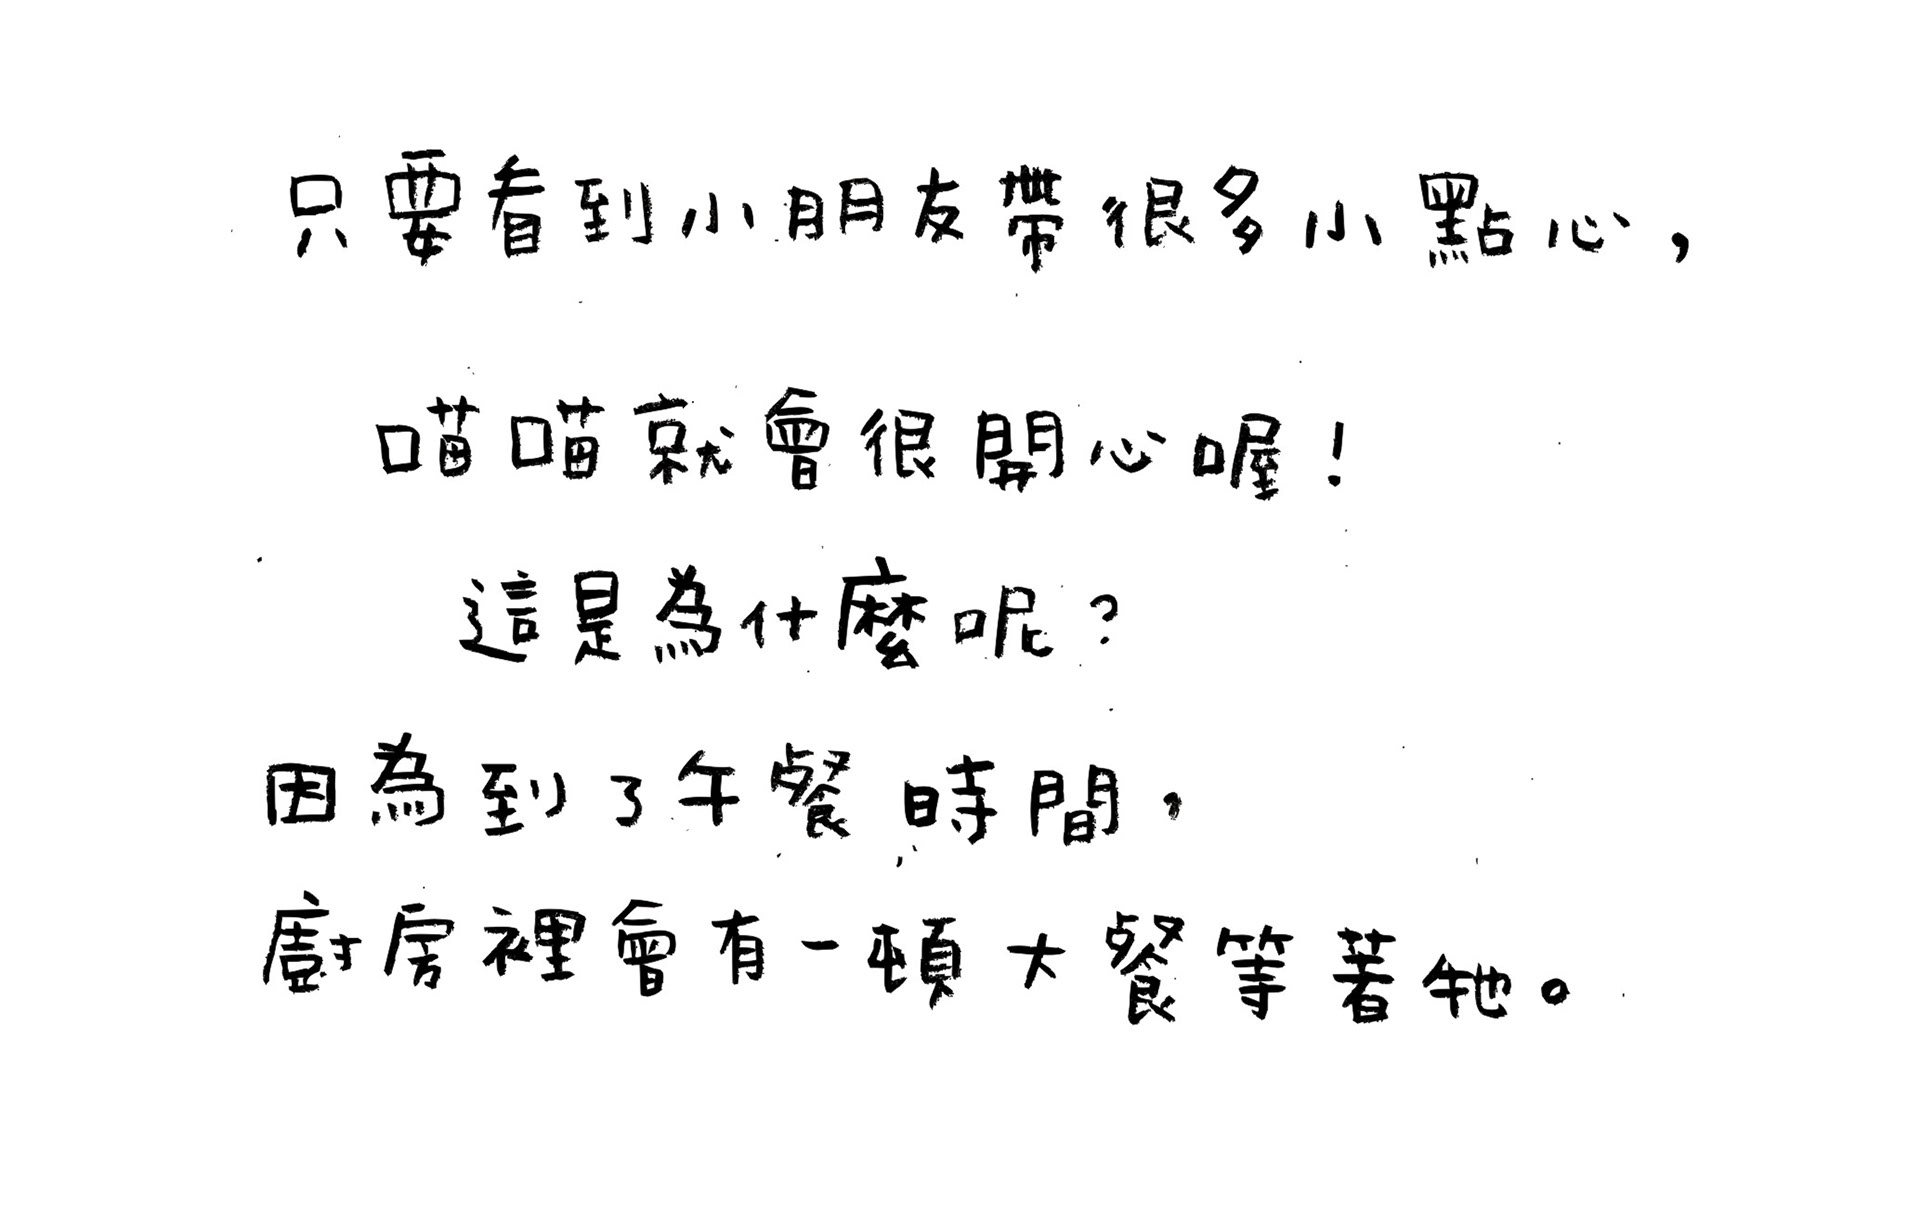 只要看到小朋友帶很多小點心，
喵喵就會很開心喔！
這是為什麼呢？
因為到了午餐時間，
廚房裡會有一頓大餐等著牠。